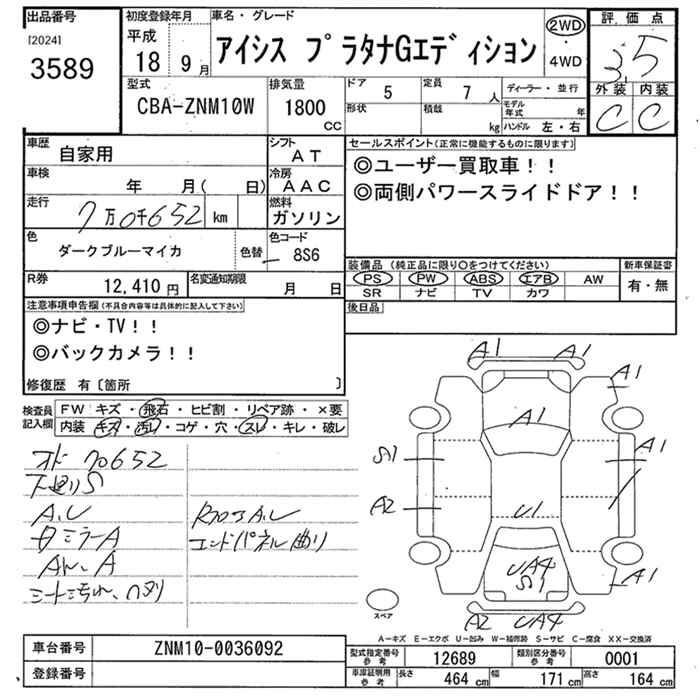 出品番号
[2024]
3589
初度登録年月
平成
18 9月
車名・グレード
アイシス プラタナGエディション
2WD
・
4WD
評価点
3.5
外装 内装
C C
型式
CBA-ZNM10W
排気量
1800
CC
ドア
5
形状
定員
7 人
積載
kg
ディーラー・並行
モデル年式 年
ハンドル 左・右
車歴
自家用
シフト
AT
車検
年 月( 日)
冷房
AAC
走行
7万0千652 km
燃料
ガソリン
色
ダークブルーマイカ
色替
色コード
8S6
R券
12,410 円
名変通知期限
月 日
セールスポイント(正常に機能するものに限ります)
◎ユーザー買取車!!
◎両側パワースライドドア!!
装備品(純正品に限り○をつけてください)
PS PW ABS エアB AW
SR ナビ TV カワ
新車保証書
有・無
後日品
注意事項申告欄(不具合内容等は具体的に記入して下さい)
◎ナビ・TV!!
◎バックカメラ!!
修復歴 有〔箇所 〕
検査員記入欄
FW キズ・飛石・ヒビ割・リペア跡・×要
内装 キズ・汚れ・コゲ・穴・スレ・キレ・破レ
70652
下廻りS
A.U
ミラーA
シート汚れ、
エンドパネル曲り
A1 A1
A1
A1
S1
A1
A2
U1
UA4
S1
A1
A2 UA4
スペア
A－キズ E－エクボ U－凹み W－補修跡 S－サビ C－腐食 XX－交換済
車台番号
ZNM10-0036092
登録番号
型式指定番号 参考
12689
類別区分番号 参考
0001
車庫証明用 参考
長さ 464 cm
幅 171 cm
高さ 164 cm